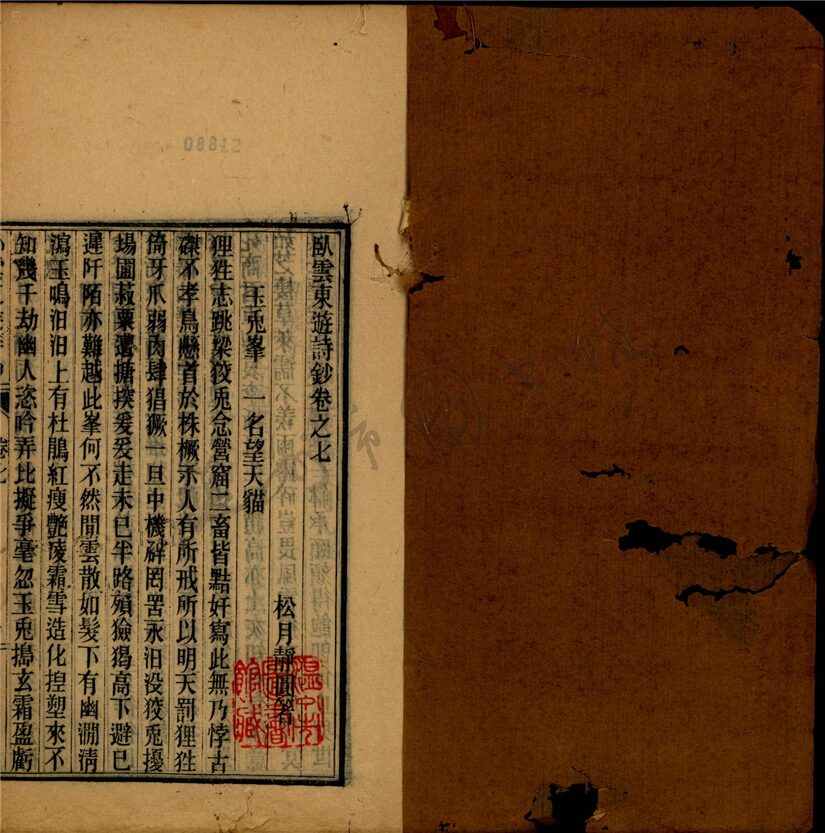 臥雲東遊詩鈔卷之七
松月靜圓著
玉兎峯 一名望天貓
狸狌志跳梁狡兎念營窟二畜皆黠奸寫此無乃悖古
磔不孝鳥懸首於株橛示人有所戒所以明天罰狸狌
倚牙爪弱肉肆猖獗一旦中機辟罔罟永汨没狡兎擾
場圃菽粟濫搪揬爰爰走未已半路殞獫猲高下避已
遲阡陌亦難越此峯何不然閒雲散如髮下有幽澗清
瀉玉鳴汨汨上有杜鵑紅瘦艷陵霜雪造化揑塑來不
知幾千劫幽人恣吟弄比擬爭毫忽玉兎搗玄霜盈虧
卷七
08812